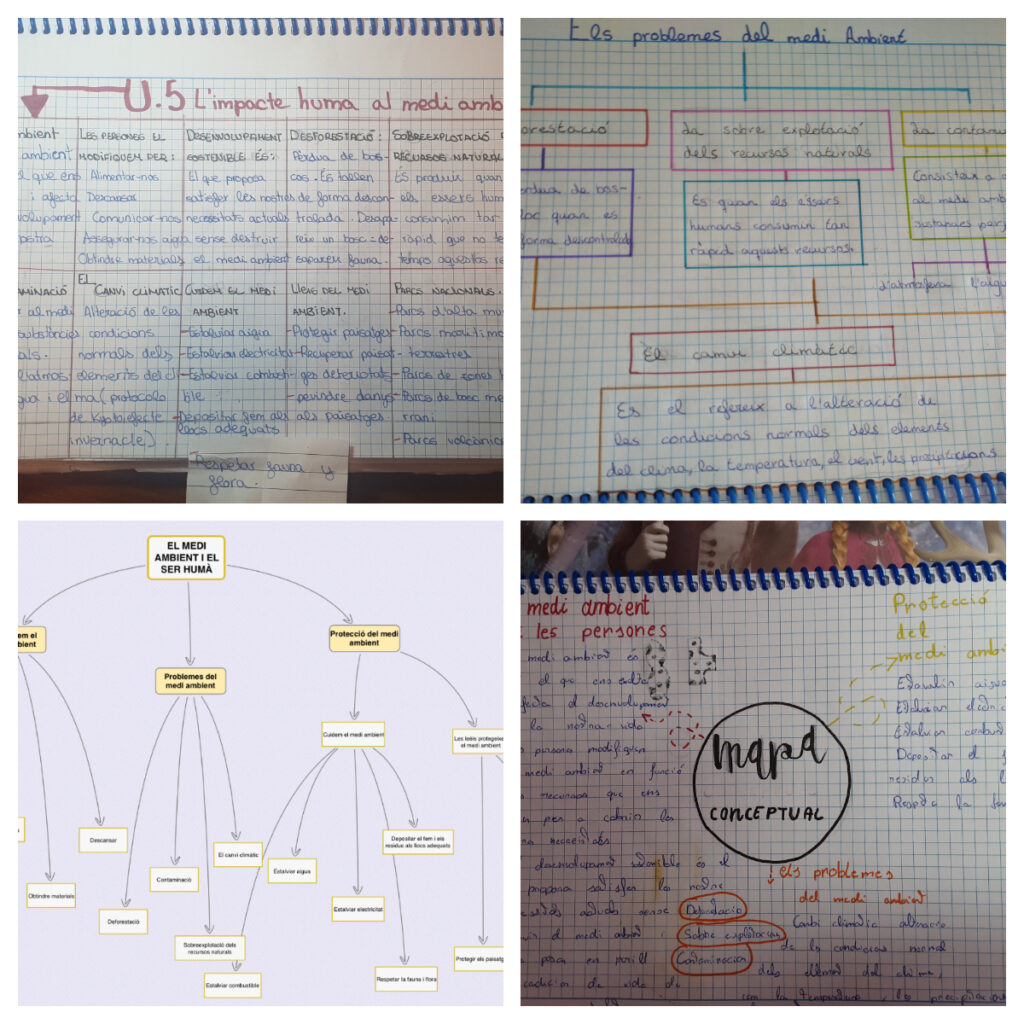 U.5 L'impacte humà al medi amb
mbient
ambient
el que ens
i afecta
volupament
LES PERSONES EL
MODIFIQUEM PER:
Alimentar-nos
Descansar
Comunicar-nos
Assegurar-nos aigua
Obtindre materials
DESENVOLUPAMENT
SOSTENIBLE ÉS:
El que proposa
satisfer les nostres
necessitats actuals
sense destruir
el medi ambient
DESFORESTACIÓ:
Pèrdua de bos-
cos. Es tallen
de forma descon-
trolada. Desapa
reix un bosc = de-
sapareix fauna.
SOBREEXPLOTACIÓ
RECURSOS NATURAL
ES produïx quan
els éssers hum
consumim tan
ràpid que no te
temps aquestos re
AMINACIÓ
al medi
substàncies
als.
l'atmos
gua i el
EL
CANVI CLIMÀTIC
Alteració de les
condicions
normals dels
elements del cli
ma (protocolo
de Kyoto, efecte
invernacle)
CUIDEM EL MEDI
AMBIENT
-Estalviar aigua
-Estalviar electricitat
-Estalviar combusti-
ble
-Depositar fem als
llocs adequats
-Respetar fauna y
flora.
LLEIS DEL MEDI
AMBIENT.
-Protegir paisatges
-Recuperar paisat-
ges deteriorats
-previndre danys
als paisatges.
PARCS NACIONALS.
-Parcs d'alta mun
-Parcs marítimo
terrestres
-Parcs de zones h
-Parcs de bosc me
rrani
-Parcs volcànics
Els problemes del medi Ambient
orestació
La sobre explotació
dels recursos naturals
La contamin
erdua de bos-
loc quan es
forma descontrolada
Es quan els éssers
humans consumim tan
ràpid aquests recursos.
Consisteix a a
al medi amb
sustancies perj
d'atmosfera l'aigu
El canvi climàtic
Es el refereix a l'alteració de
les condicions normals dels elements
del clima, la temperatura, el vent, les precipitacions
EL MEDI
AMBIENT I EL
SER HUMÀ
em el
bient
Protecció del medi
ambient
Problemes del
medi ambient
Cuidem el medi ambient
Les lleis protegeixe
el medi ambient
Descansar
Depositar el fem i els
residus als llocs adequats
El canvi climàtic
Estalviar aigua
Contaminació
Obtindre materials
Estalviar electricitat
Deforestació
Sobreexplotació dels
recursos naturals
Protegir els paisatg
Respetar la fauna i flora
Estalviar combustible
medi ambient
les persones
medi ambient és
el que ens
el desenvolupament
la nostra vida
persona modifiquen
medi ambient en funció
que ens
per a cobrir les
necessitats
desenvolupament sostenible és el
proposa satisfer les nostre
actuals sense
el medi ambient i
posa en perill
de vida de
mapa
CONCEPTUAL
Protecció
del
medi ambi
Estalviar aigua
Estalviar
Estalviar
Depositar el
residus als
la
els problemes
del medi ambient
Sobre explotacion
Contaminacion
Canvi climàtic alteració
de les condicions normal
dels element del clima,
com la temperatura, les precipitacions